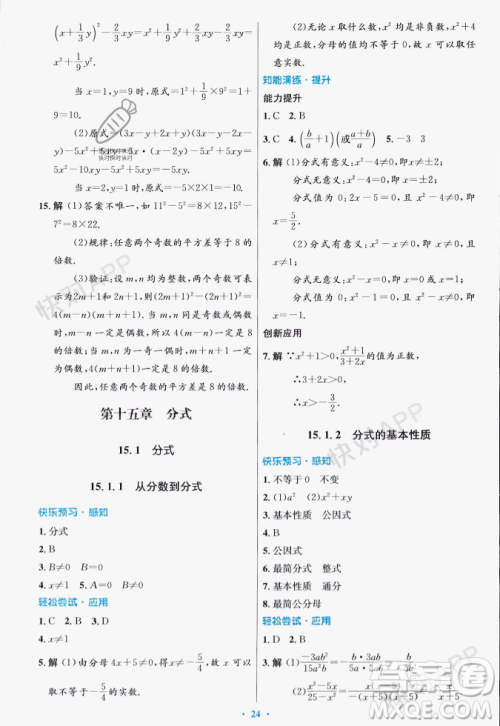 (x+1/3 y)²-2/3 xy=x²+2/3 xy+1/9 y²-2/3 xy=
x²+1/9 y².
当 x=1,y=9 时,原式=1²+1/9×9²=1
+9=10.
(2)原式=(3x-y+2x+y)(3x-y-2x-y)
-5x²+5xy=5x·(x-2y)-5x²+5xy=
-5xy.
15.解 (1)答案不唯一,如 11²-5²=8×12,15²-
7²=8×22.
(2)规律:任意两个奇数的平方差等于 8 的
倍数.
(3)验证:设 m,n 均为整数,两个奇数可表
示为 2m+1 和 2n+1,则(2m+1)²-(2n+1)²=
4(m-n)(m+n+1).当 m,n 同是奇数或偶数
时,m-n 一定是偶数,所以 4(m-n)一定是 8
的倍数;当 m,n 为一奇一偶时,则 m+n+1 一
定是偶数,所以 4(m+n+1)一定是 8 的倍数.
因此,任意两个奇数的平方差等于 8 的倍数.
第十五章 分式
15.1 分式
15.1.1 从分数到分式
快乐预习·感知
1.分式
2.B
3.B≠0 B=0
4.x≠1 5.A=0 B≠0
轻松尝试·应用
1.C 2.B 3.D
4.x≠1
5.解 (1)由分母 4x+5≠0,得 x≠-5/4,所以 x 可
以取不等于-5/4的实数.
(2)无论 x 取什么数,x² 均是非负数,故
x²+1≠0,分母的值均不等于 0,故 x 可以取任
意实数.
知能演练·提升
能力提升
1.C 2.C
3.C 4.(b/a+1)(或(a+b)/a) 5.-3 3
6.解 (1)分式有意义:x²-4≠0,即 x≠±2;
分式无意义:x²-4=0,即 x=±2;
分式值为 0:2x-5=0,且 x²-4≠0,即 x=
5/2.
(2)分式有意义:x²-x≠0,即 x≠0 且 x≠1;
分式无意义:x²-x=0,即 x=0 或 x=1;
分式值为 0:x²-1=0,且 x²-x≠0,即 x=
-1.
创新应用
7.解 ∵x²+1>0,(x²+1)/(3+2x)的值为正数,
∴3+2x>0.
∴x>-3/2.
15.1.2 分式的基本性质
快乐预习·感知
1.不等于 0
2.(1)a² (2)x²+xy
3.基本性质 公因式
4.B
5.公因式
6.最简分式 整式
7.基本性质 通分
8.最简公分母
轻松尝试·应用
1.D 2.B
3.解 (1)-3ab²/15a²b=-b/5a.
24
快对APP
快对APP
答案圈